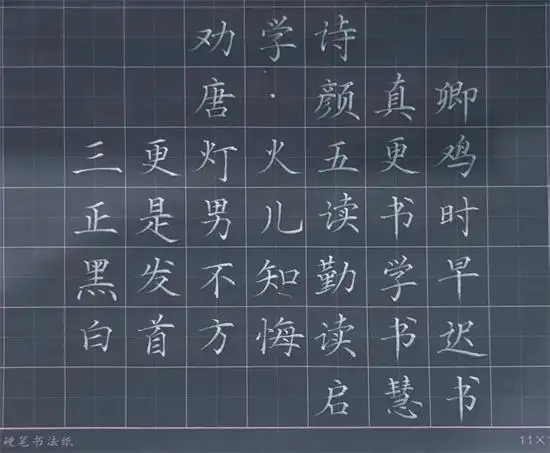 劝学诗
唐·颜真卿
三更灯火五更鸡
正是男儿读书时
黑发不知勤学早
白首方悔读书迟
启慧书
硬笔书法纸
11×